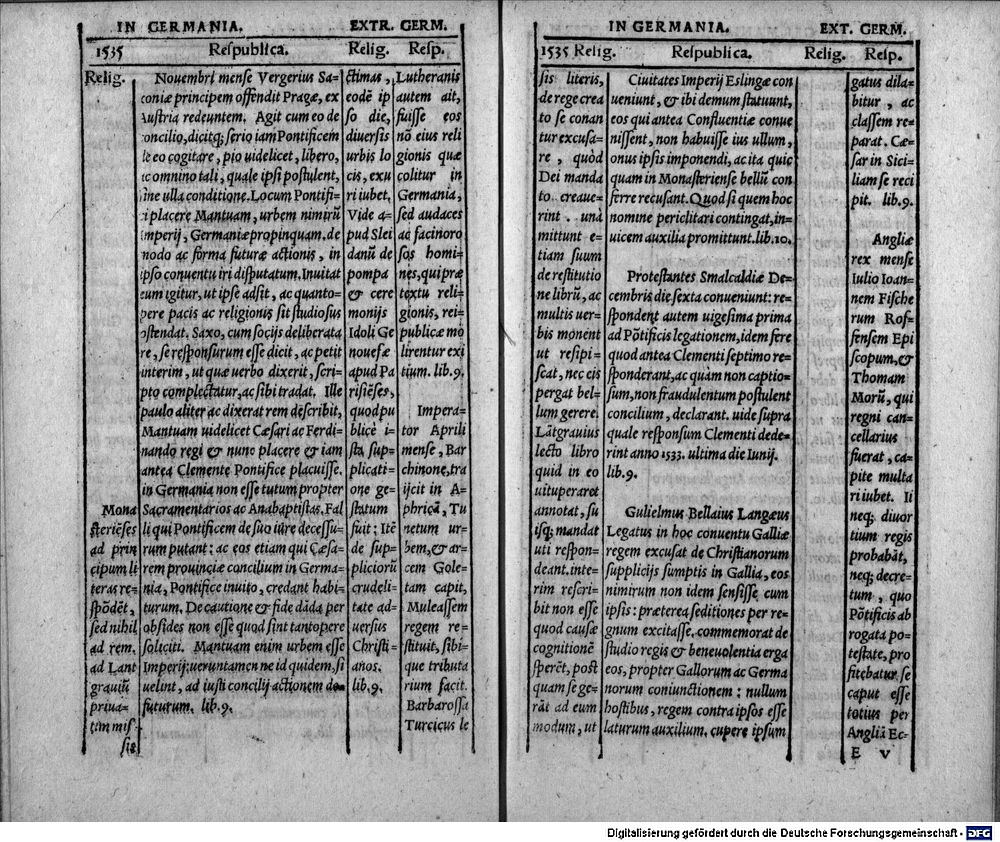 IN GERMANIA.
EXTR. GERM.
1535
Respublica.
Relig.
Resp.
Relig.
Mona
steriēses
ad prin
cipum li
teras re-
spōdēt,
sed nihil
ad rem.
ad Lant
grauiū
priua-
tim mis-
sis
Nouembri mense Vergerius Sa-
coniæ principem offendit Pragæ, ex
Austria redeuntem. Agit cum eo de
concilio, dicitq; serio iam Pontificem
de eo cogitare, pio uidelicet, libero,
ac omnino tali, quale ipsi postulent,
sine ulla conditione. Locum Pontifi-
ci placere Mantuam, urbem nimirū
Imperij, Germaniæ propinquam. de
modo ac forma futuræ actionis, in
ipso conuentu iri disputatum. Inuitat
eum igitur, ut ipse adsit, ac quanto-
pere pacis ac religionis sit studiosus
ostendat. Saxo, cum socijs deliberata
re, se responsurum esse dicit, ac petit
interim, ut quæ uerbo dixerit, scri-
pto complectatur, ac sibi tradat. Ille
paulo aliter ac dixerat rem describit,
Mantuam uidelicet Cæsari ac Ferdi-
nando regi & nunc placere & iam
antea Clemente Pontifice placuisse.
in Germania non esse tutum propter
Sacramentarios ac Anabaptistas. Fal
li qui Pontificem de suo iure decessu-
rum putant: ac eos etiam qui Cæsa-
rem prouinciæ concilium in Germa-
nia, Pontifice inuito, credant habi-
turum. De cautione & fide dāda per
obsides non esse quod sint tantopere
soliciti. Mantuam enim urbem esse
Imperij: ueruntamen ne id quidem, si
uelint, ad iusti concilij actionem de-
futurum. lib. 9.
ctimas,
eodē ip
so die,
diuersis
urbis lo
cis, exu
ri iubet.
Vide a-
pud Slei
danū de
pompa
& cere
monijs
Idoli Ge
nouefæ
apud Pa
risiēses,
quod pu
blicè i-
sta sup-
plicati-
one ge-
statum
fuit: Itē
de sup-
pliciorū
crudeli-
tate ad-
uersus
Christi-
anos.
lib. 9.
Lutheranis
autem ait,
fuisse eos
nō eius reli
gionis quæ
colitur in
Germania,
sed audaces
ac facinoro
sos homi-
nes, qui præ
textu reli-
gionis, rei-
publicæ mo
lirentur exi
tium. lib. 9.
Impera-
tor Aprili
mense, Bar
chinone, tra
ijcit in A-
phricā, Tu
netum ur-
bem, & ar-
cem Gole-
tam capit,
Muleassem
regem re-
stituit, sibi-
que tributa
rium facit.
Barbarossa
Turcicus le
IN GERMANIA.
EXT. GERM.
1535 Relig.
Respublica.
Relig.
Resp.
sis literis,
de rege crea
to se conan
tur excusa-
re, quòd
Dei manda
to creaue-
rint. und
mittunt e-
tiam suum
de restitutio
ne librū, ac
multis uer-
bis monent
ut resipi-
scat, nec eis
pergat bel-
lum gerere.
Lātgrauius
lecto libro
quid in eo
uituperaret
annotat, su
isq; mandat
uti respon-
deant. inte-
rim rescri-
bit non esse
quod causæ
cognitionē
sperēt, post
quam se ge-
rāt ad eum
modum, ut
Ciuitates Imperij Eslingæ con
ueniunt, & ibi demum statuunt,
eos qui antea Confluentiæ conue
nissent, non habuisse ius ullum,
onus ipsis imponendi, ac ita quic
quam in Monasteriense bellū con
ferre recusant. Quod si quem hoc
nomine periclitari contingat, in-
uicem auxilia promittunt. lib. 10.
Protestantes Smalcaldiæ De-
cembris die sexta conueniunt: re-
spondent autem uigesima prima
ad Pōtificis legationem, idem fere
quod antea Clementi septimo re-
sponderant, ac quàm non captio-
sum, non fraudulentum postulent
concilium, declarant. uide supra
quale responsum Clementi dede-
rint anno 1533. ultima die Iunij.
lib. 9.
Gulielmus Bellaius Langæus
Legatus in hoc conuentu Galliæ
regem excusat de Christianorum
supplicijs sumptis in Gallia, eos
nimirum non idem sensisse cum
ipsis: præterea seditiones per re-
gnum excitasse. commemorat de
studio regis & beneuolentia erga
eos, propter Gallorum ac Germa
norum coniunctionem: nullum
hostibus, regem contra ipsos esse
laturum auxilium. cupere ipsum
gatus dila-
bitur, ac
classem re-
parat. Cæ-
sar in Sici-
liam se reci
pit. lib. 9.
Angliæ
rex mense
Iulio Ioan-
nem Fische
rum Rof-
fensem Epi
scopum, &
Thomam
Morū, qui
regni can-
cellarius
fuerat, ca-
pite multa
ri iubet. Ii
neq; diuor
tium regis
probabāt,
neq; decre-
tum, quo
Pōtificis ab
rogata po-
testate, pro
fitebatur se
caput esse
totius per
Angliā Ec-
E V
Digitalisierung gefördert durch die Deutsche Forschungsgemeinschaft - DFG